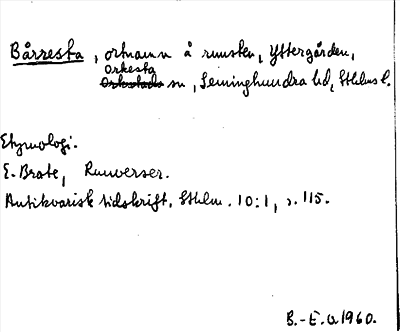 Bårresta, ortnamn å runsten, Yttergården,
Orkesta
sn, Seminghundra hd, Sthlms l.
Etymologi.
E. Brate, Runverser.
Antikvarisk tidskrift, Sthlm. 10:1, s. 115.
B.-E.O. 1960.